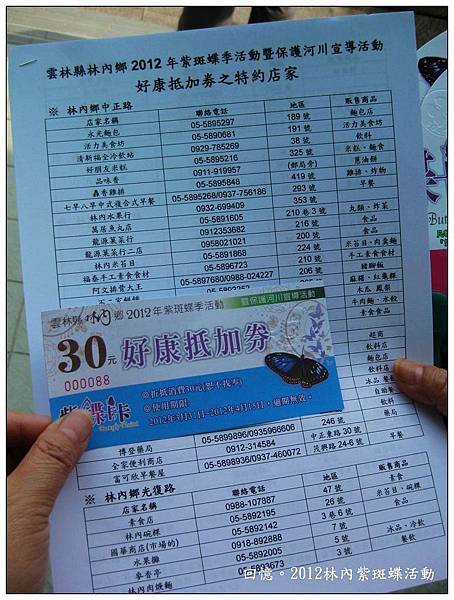 雲林縣林內鄉2012年紫斑蝶季活動暨保護河川宣導活動
好康抵加券之特約店家
※ 林內鄉中正路
店家名稱 聯絡電話 地區 販售商品
水光麵包 05-5895297 189號 麵包店
活力美食坊 05-5890681 191號 活力美食坊
清新福全冷飲站 0929-785269 38號 飲料
好朋友米糕 05-5895216 325號 米糕、麵食
品味香 0911-919957 (郵局旁) 蔥油餅
轟香雞排 05-5895848 419號 雞排、炸物
七早八早中式複合式早餐 05-5895268/0937-756186 293號 早餐
林內水果行 0932-699409 353號
萬居魚丸店 05-5891605 210巷3號 丸類、炸菜
龍源菓菜行 0912353682 216號 食品
龍源菓菜行二店 0958021021 200號 食品
林內米苔目 05-5891868 224號 米苔目、肉羹麵
福泰手工素食食材 05-5896723 210號 手工素食食材
阿文排骨大王 05-5897680/0988-024227 206號 豬腳飯
雲林縣林內鄉2012年紫斑蝶季活動
暨保護河川宣導活動
30元 好康抵加券
000088
◎折抵消費30元(恕不找零)
◎使用期限
2012年3月31日-2012年4月15日，逾期無效。
紫蝶卡
博登藥局 246號 藥局
全家便利商店 05-5899896/0935966606
富可欣早餐屋 0912-314584 中正東路30號
05-5898936/0937-460072 茂興路24-6號 早餐
※ 林內鄉光復路
店家名稱 聯絡電話 地區 販售商品
素食店 0988-107887 47號 素食
林內碗粿 05-5892195 26號 米苔目、碗粿
國華商店(市場的) 05-5892142 3巷6號 食品
水果攤 0918-892888 7號
麥香亭 05-5892005 5號 冰品、冷飲
林內肉焿麵 05-5893673 3號 餐飲
回憶。2012林內紫斑蝶活動